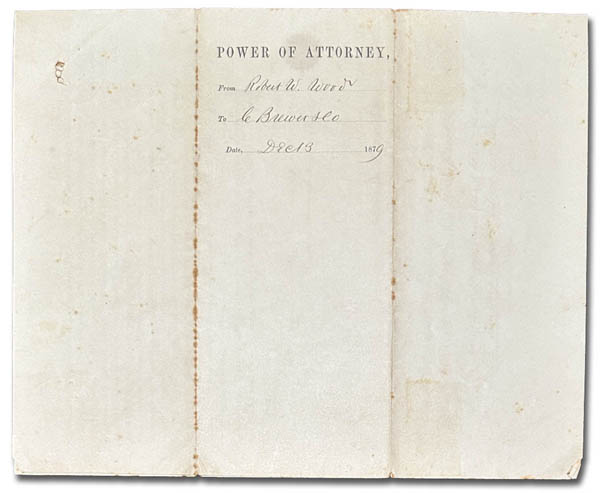 POWER OF ATTORNEY,
From Robert W. Wood
To C Brewer & Co
Date, Dec 13 1879